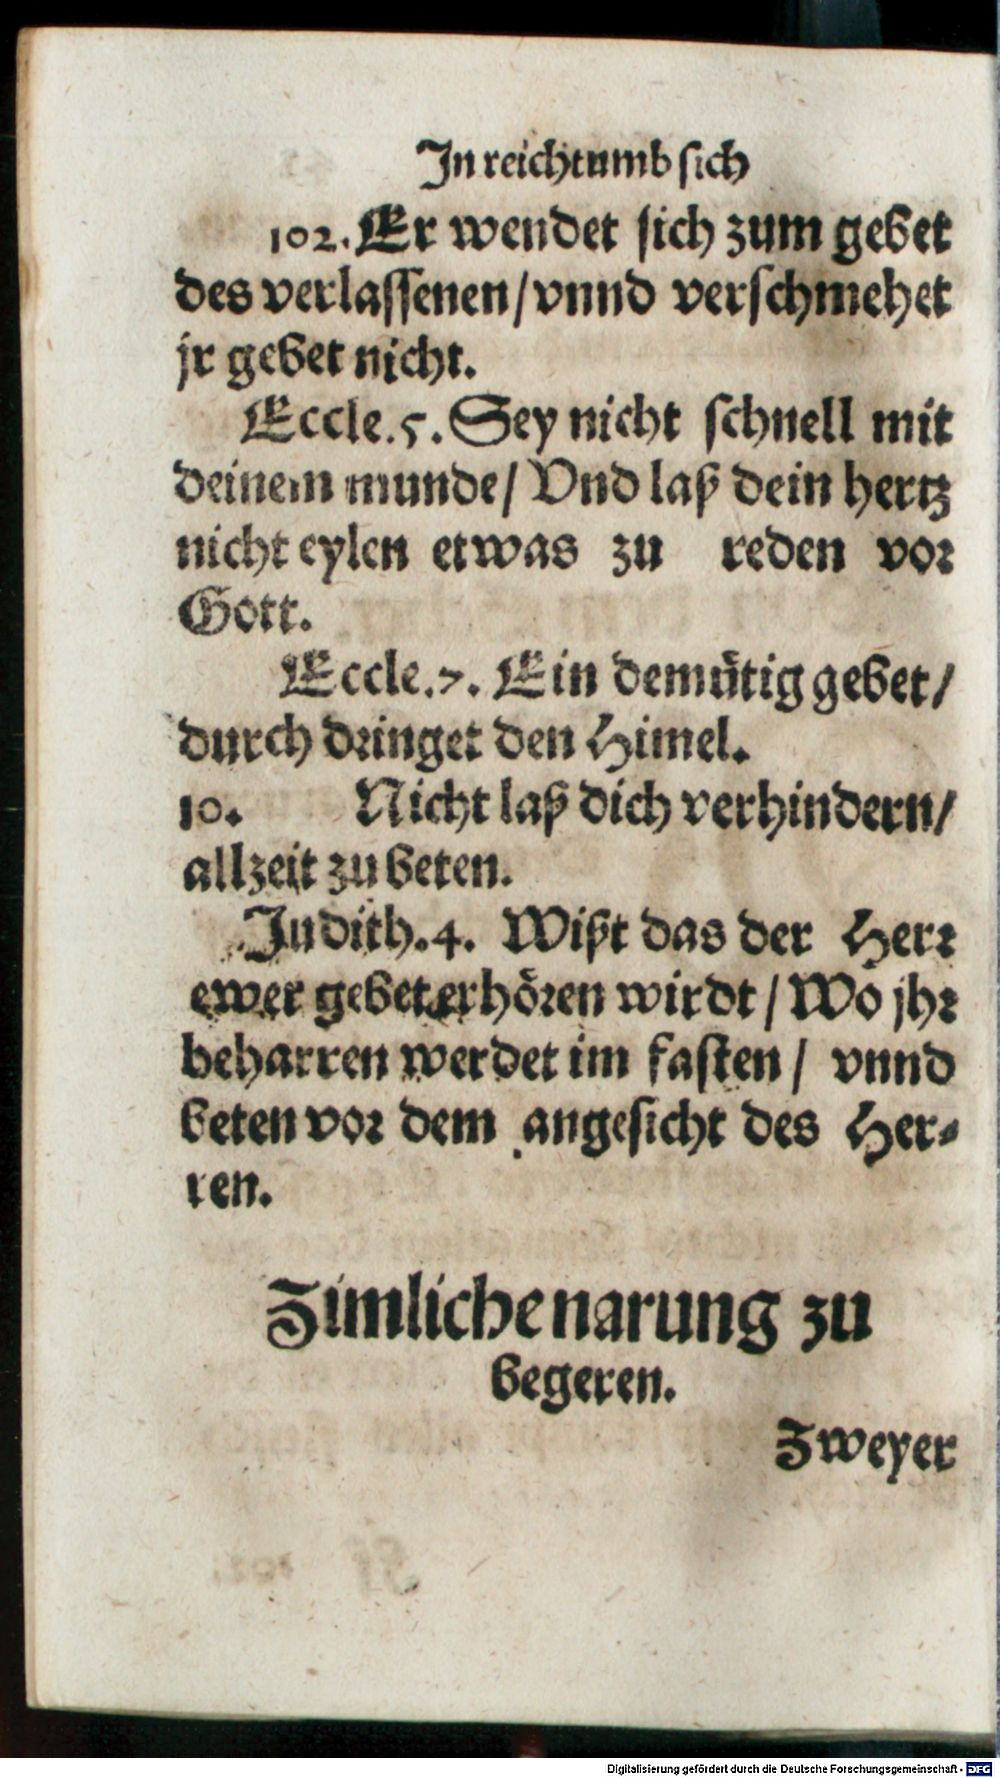 In reichtumb sich
102. Er wendet sich zum gebet
des verlassenen/vnnd verschmehet
jr gebet nicht.
Eccle.5. Sey nicht schnell mit
deinem munde/ Vnd laß dein hertz
nicht eylen etwas zu reden vor
Gott.
Eccle.7. Ein demütig gebet/
durch dringet den Himel.
10. Nicht laß dich verhindern/
allzeit zu beten.
Judith.4. Wißt das der Herr
ewer gebet erhören wirdt/ Wo jhr
beharren werdet im fasten/ vnnd
beten vor dem angesicht des Her-
ren.
Zimliche narung zu
begeren.
Zweyer
Digitalisierung gefördert durch die Deutsche Forschungsgemeinschaft - DFG